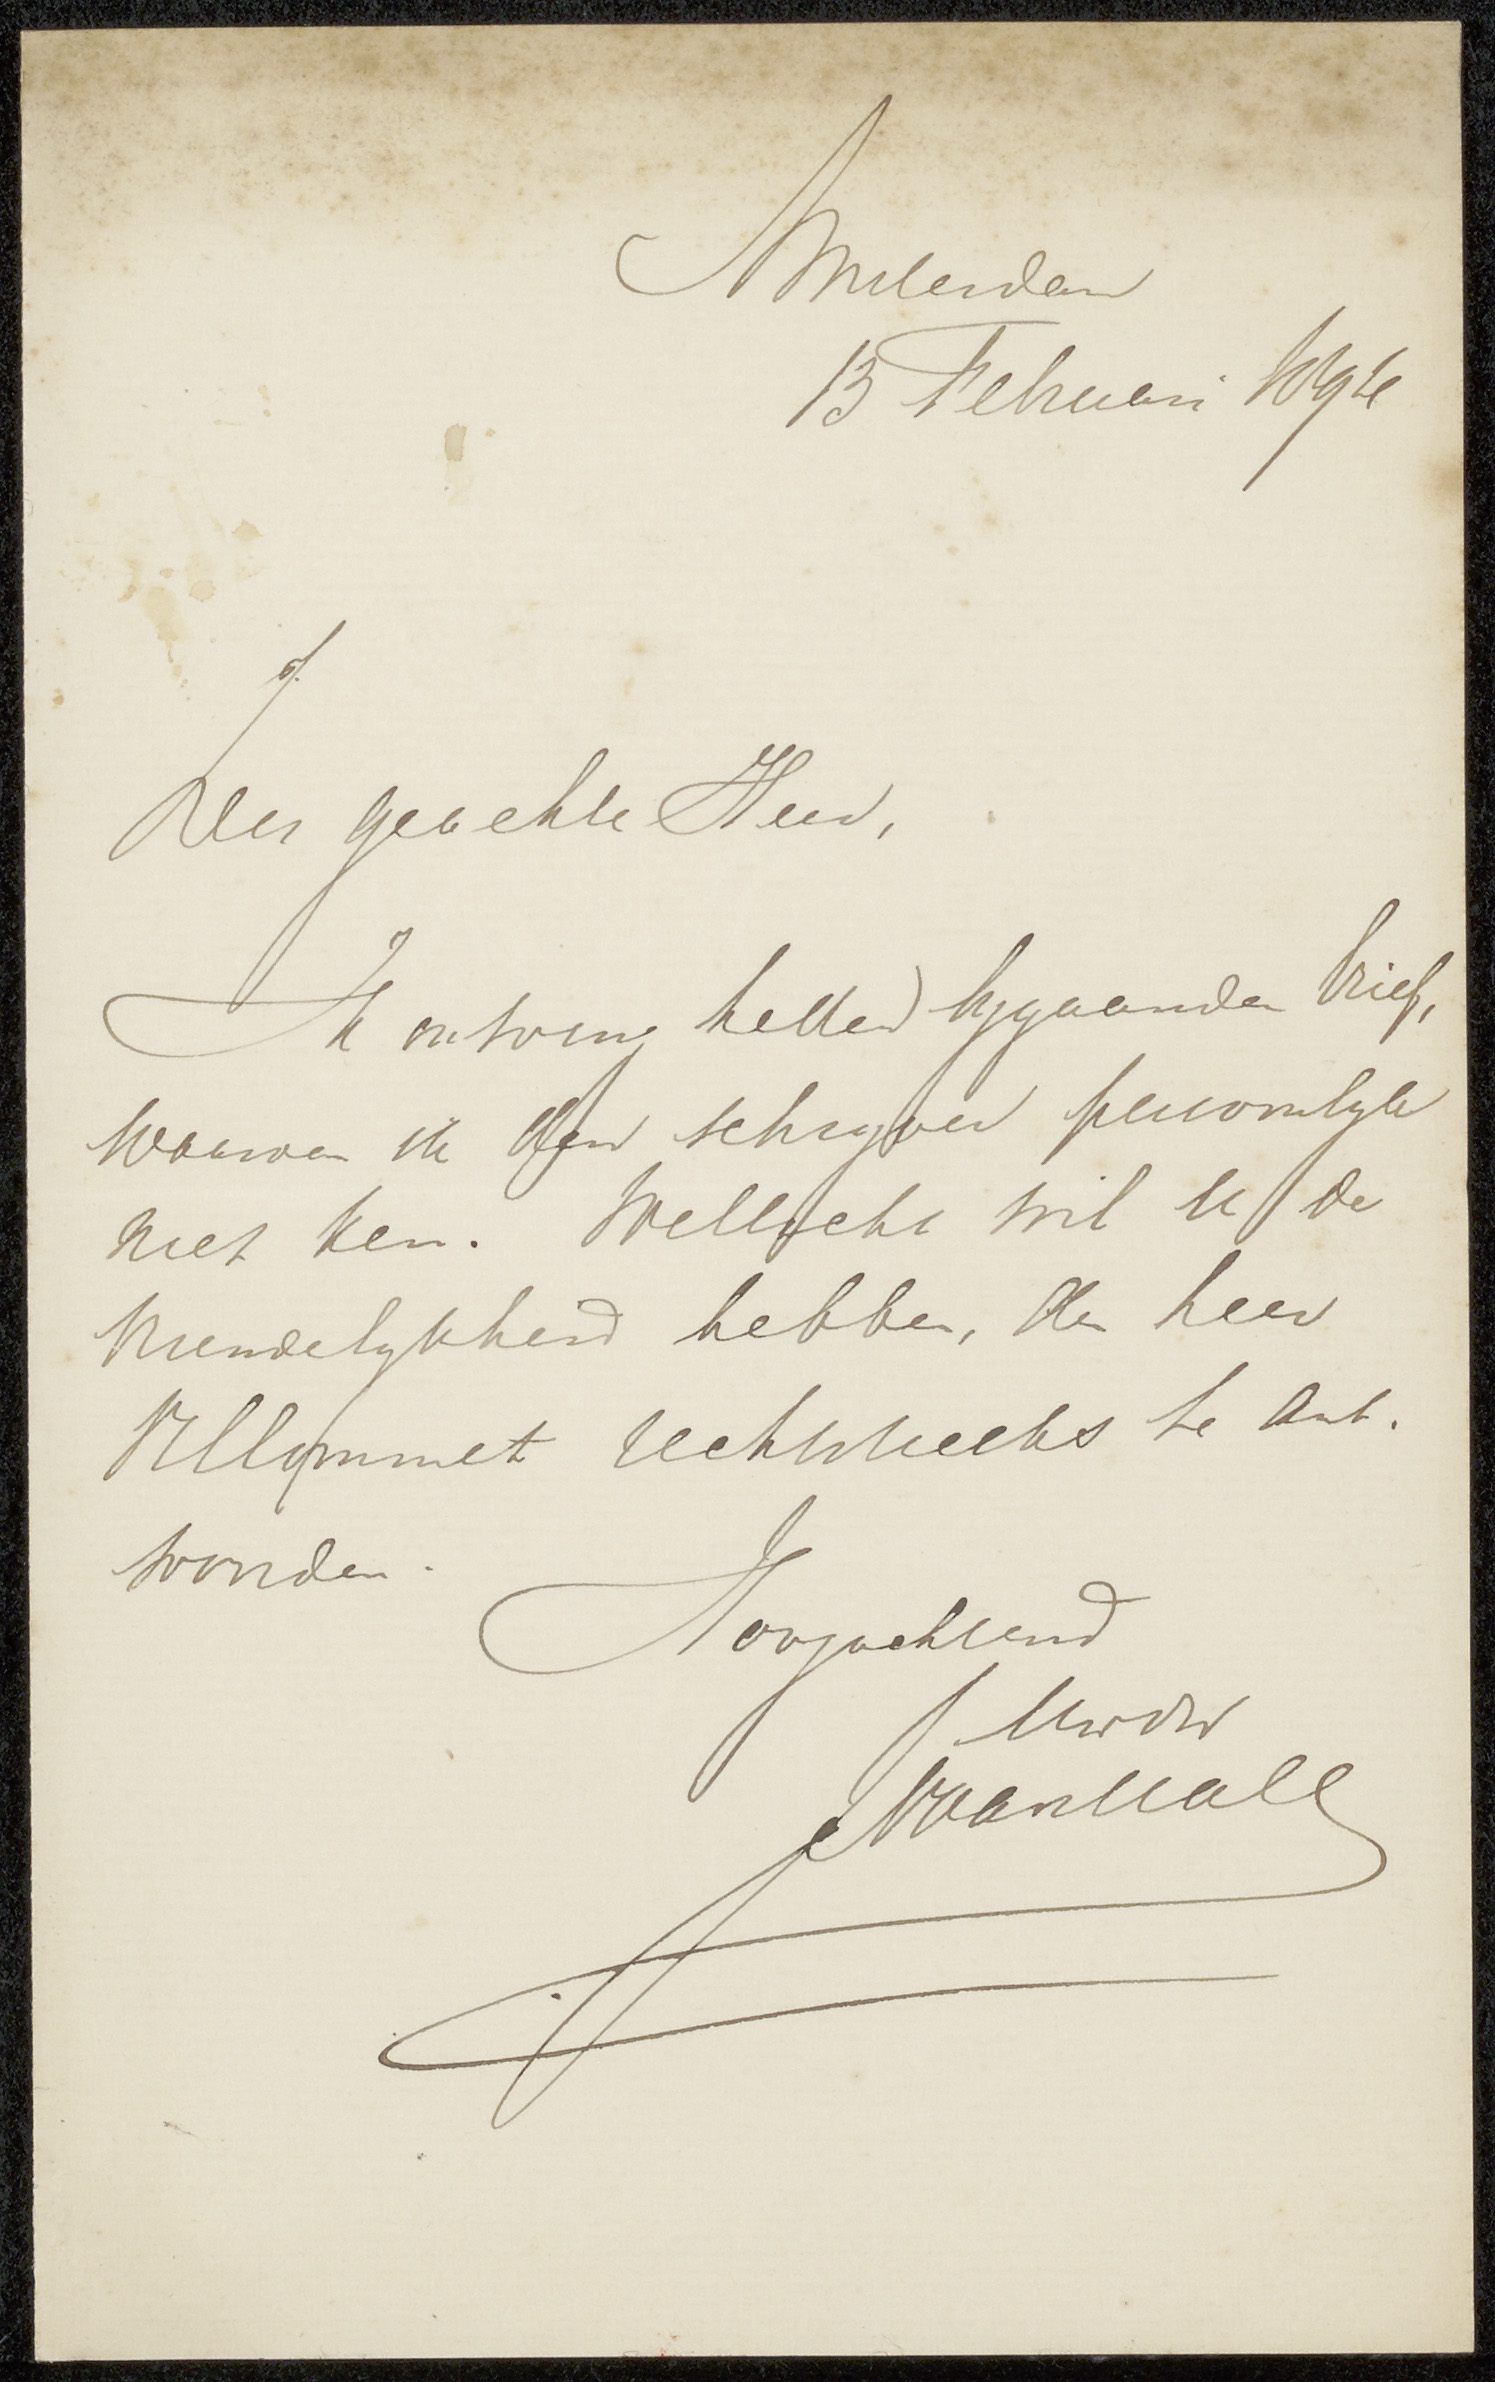 Amsterdam
13 Februari
Zeer geachte Heer,
Ik ontving heden bijgaanden brief,
waarvan ik den schrijver persoonlijk
niet ken. Wellicht wil U de
vriendelijkheid hebben, den heer
rechtstreeks te ant-
woorden.
Hoogachtend
Uwdw
MvanHall